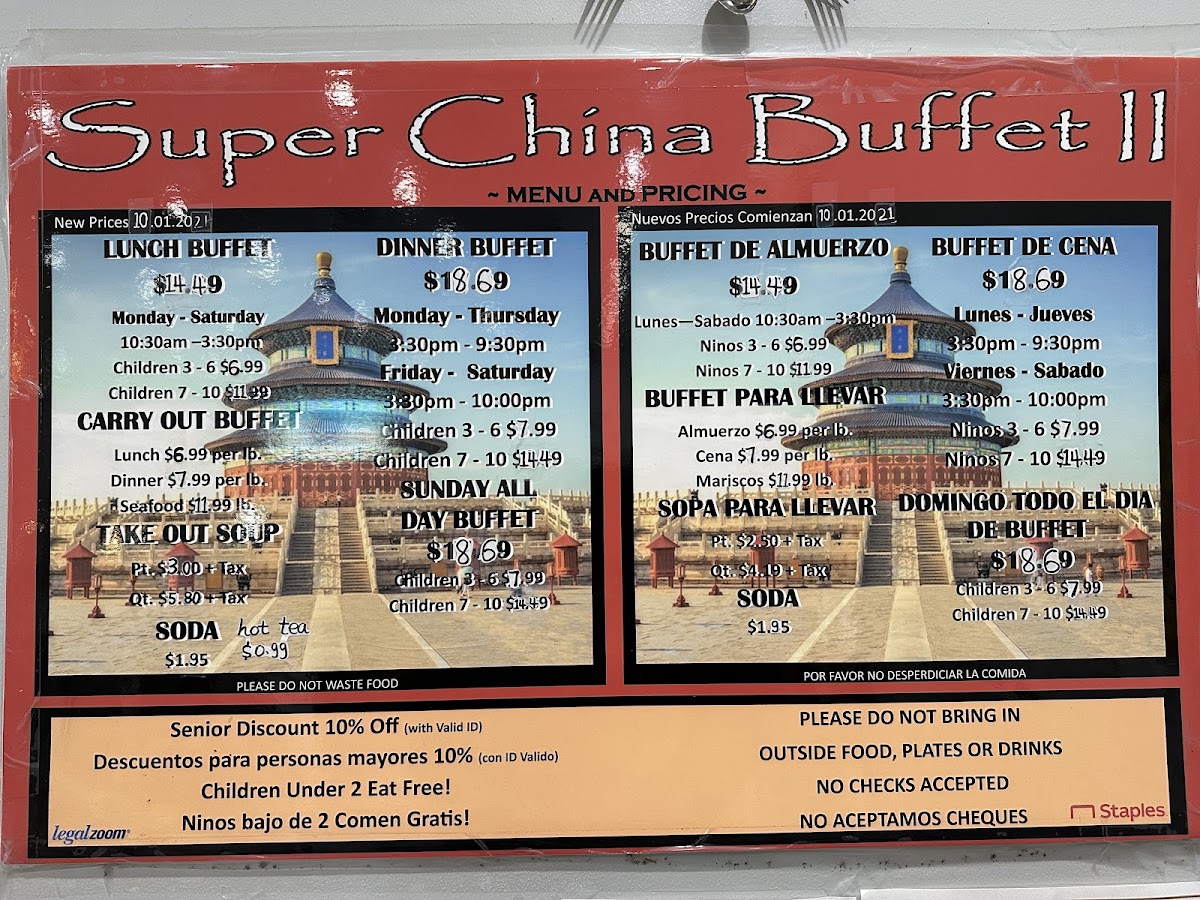 Super China Buffet II
~ MENU AND PRICING ~
New Prices 10.01.2021
LUNCH BUFFET
$14.49
Monday - Saturday
10:30am –3:30pm
Children 3 - 6 $6.99
Children 7 - 10 $11.99
CARRY OUT BUFFET
Lunch $6.99 per lb.
Dinner $7.99 per lb.
Seafood $11.99 lb.
TAKE OUT SOUP
Pt. $3.00 + Tax
Qt. $5.80 + Tax
SODA hot tea
$1.95 $0.99
DINNER BUFFET
$18.69
Monday - Thursday
3:30pm - 9:30pm
Friday - Saturday
3:30pm - 10:00pm
Children 3 - 6 $7.99
Children 7 - 10 $14.49
SUNDAY ALL
DAY BUFFET
$18.69
Children 3 - 6 $7.99
Children 7 - 10 $14.49
PLEASE DO NOT WASTE FOOD
Nuevos Precios Comienzan 10.01.2021
BUFFET DE ALMUERZO
$14.49
Lunes—Sabado 10:30am –3:30pm
Ninos 3 - 6 $6.99
Ninos 7 - 10 $11.99
BUFFET PARA LLEVAR
Almuerzo $6.99 per lb.
Cena $7.99 per lb.
Mariscos $11.99 lb.
SOPA PARA LLEVAR
Pt. $2.50 + Tax
Qt. $4.19 + Tax
SODA
$1.95
BUFFET DE CENA
$18.69
Lunes - Jueves
3:30pm - 9:30pm
Viernes - Sabado
3:30pm - 10:00pm
Ninos 3 - 6 $7.99
Ninos 7 - 10 $14.49
DOMINGO TODO EL DIA
DE BUFFET
$18.69
Children 3 - 6 $7.99
Children 7 - 10 $14.49
POR FAVOR NO DESPERDICIAR LA COMIDA
Senior Discount 10% Off (with Valid ID)
Descuentos para personas mayores 10% (con ID Valido)
Children Under 2 Eat Free!
Ninos bajo de 2 Comen Gratis!
legalzoom®
PLEASE DO NOT BRING IN
OUTSIDE FOOD, PLATES OR DRINKS
NO CHECKS ACCEPTED
NO ACEPTAMOS CHEQUES
Staples